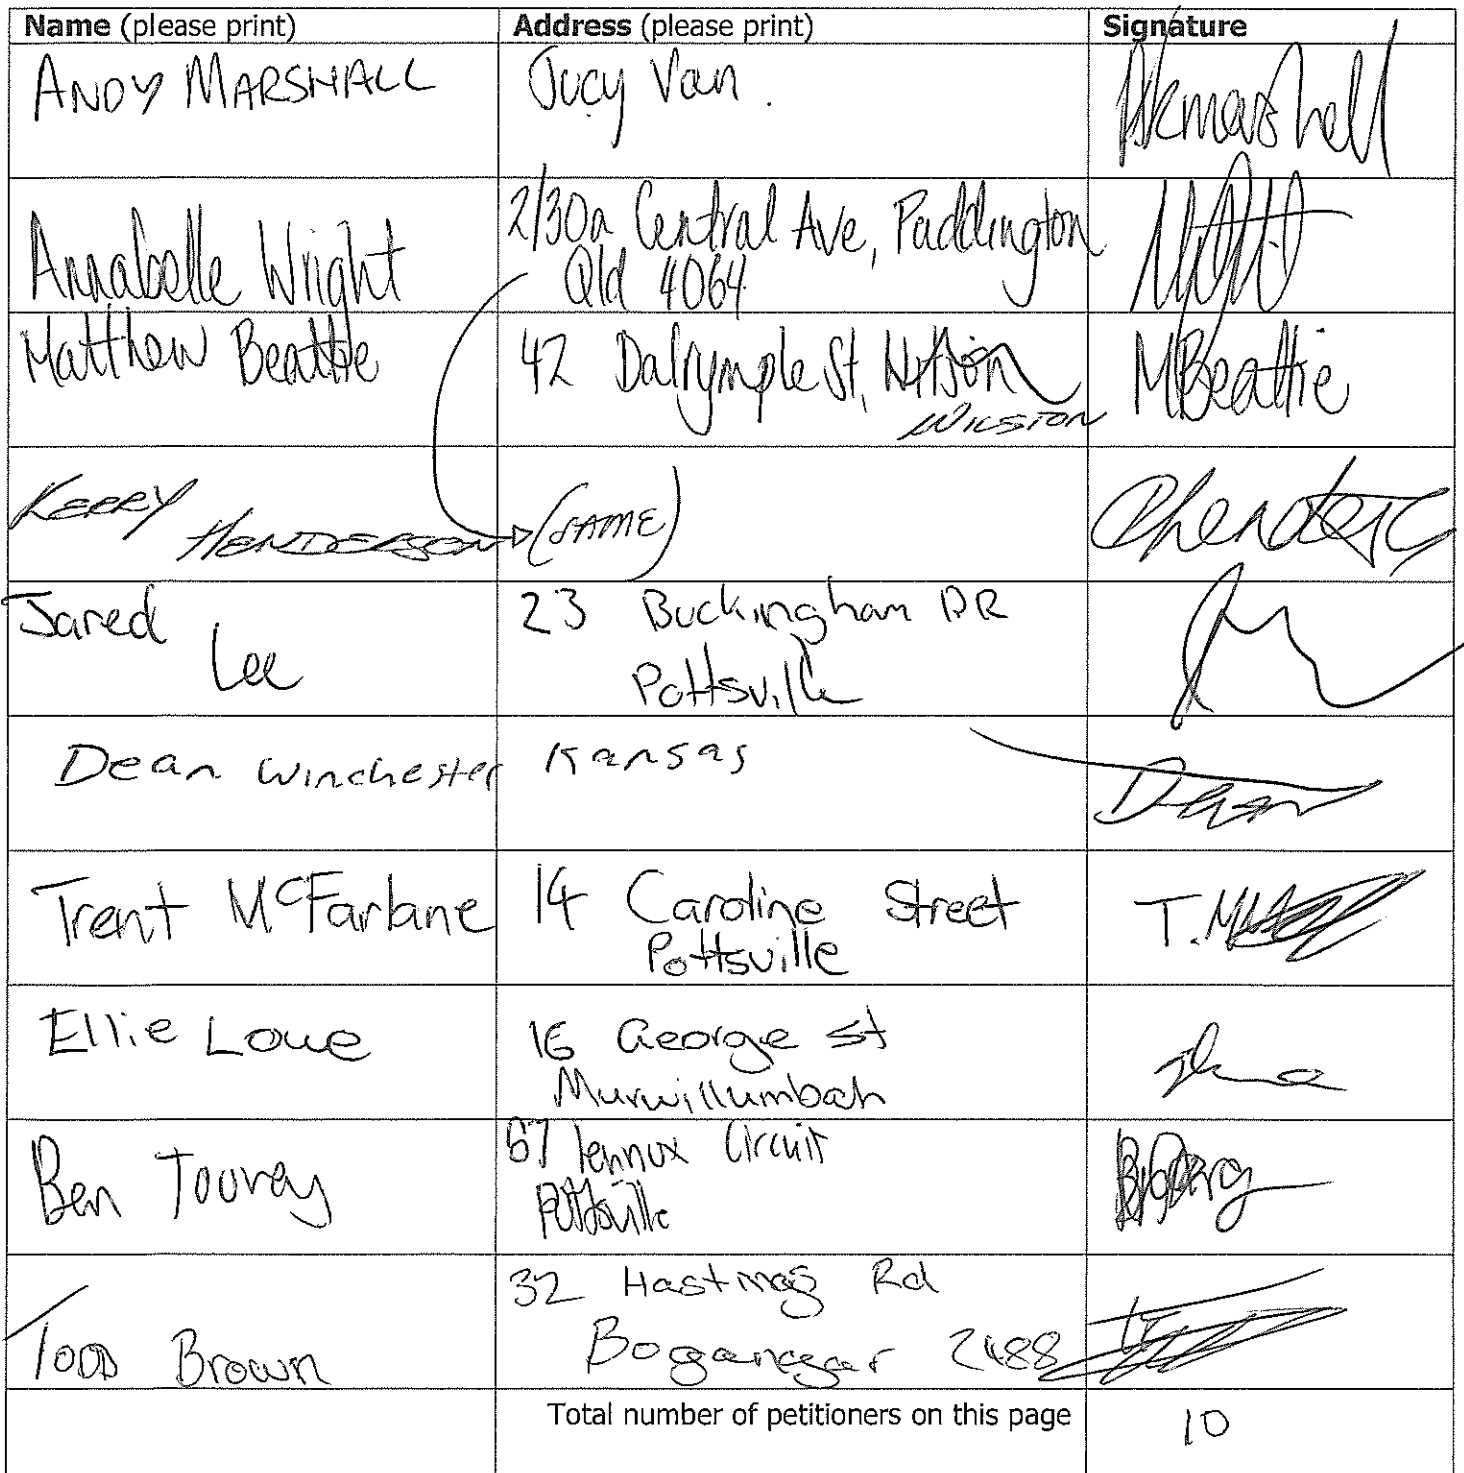 Name (please print) Address (please print) Signature
ANDY MARSHALL Jucy Van. AKmarshall
Annabelle Wright 2/30a Central Ave, Paddington
Qld 4064
Matthew Beattie 42 Dalrymple St, MBeattie
WILSTON
KERRY
HENDERSON (SAME)
Jared 23 Buckingham DR
Lee Pottsville
Dean Winchester Kansas Dean
Trent McFarlane 14 Caroline Street T.
Pottsville
Ellie Lowe 16 George St
Murwillumbah
Ben Touray 67 lennox Circuit
Pottsville
32 Hastings Rd
TODD Brown Bogangar 2488
Total number of petitioners on this page 10